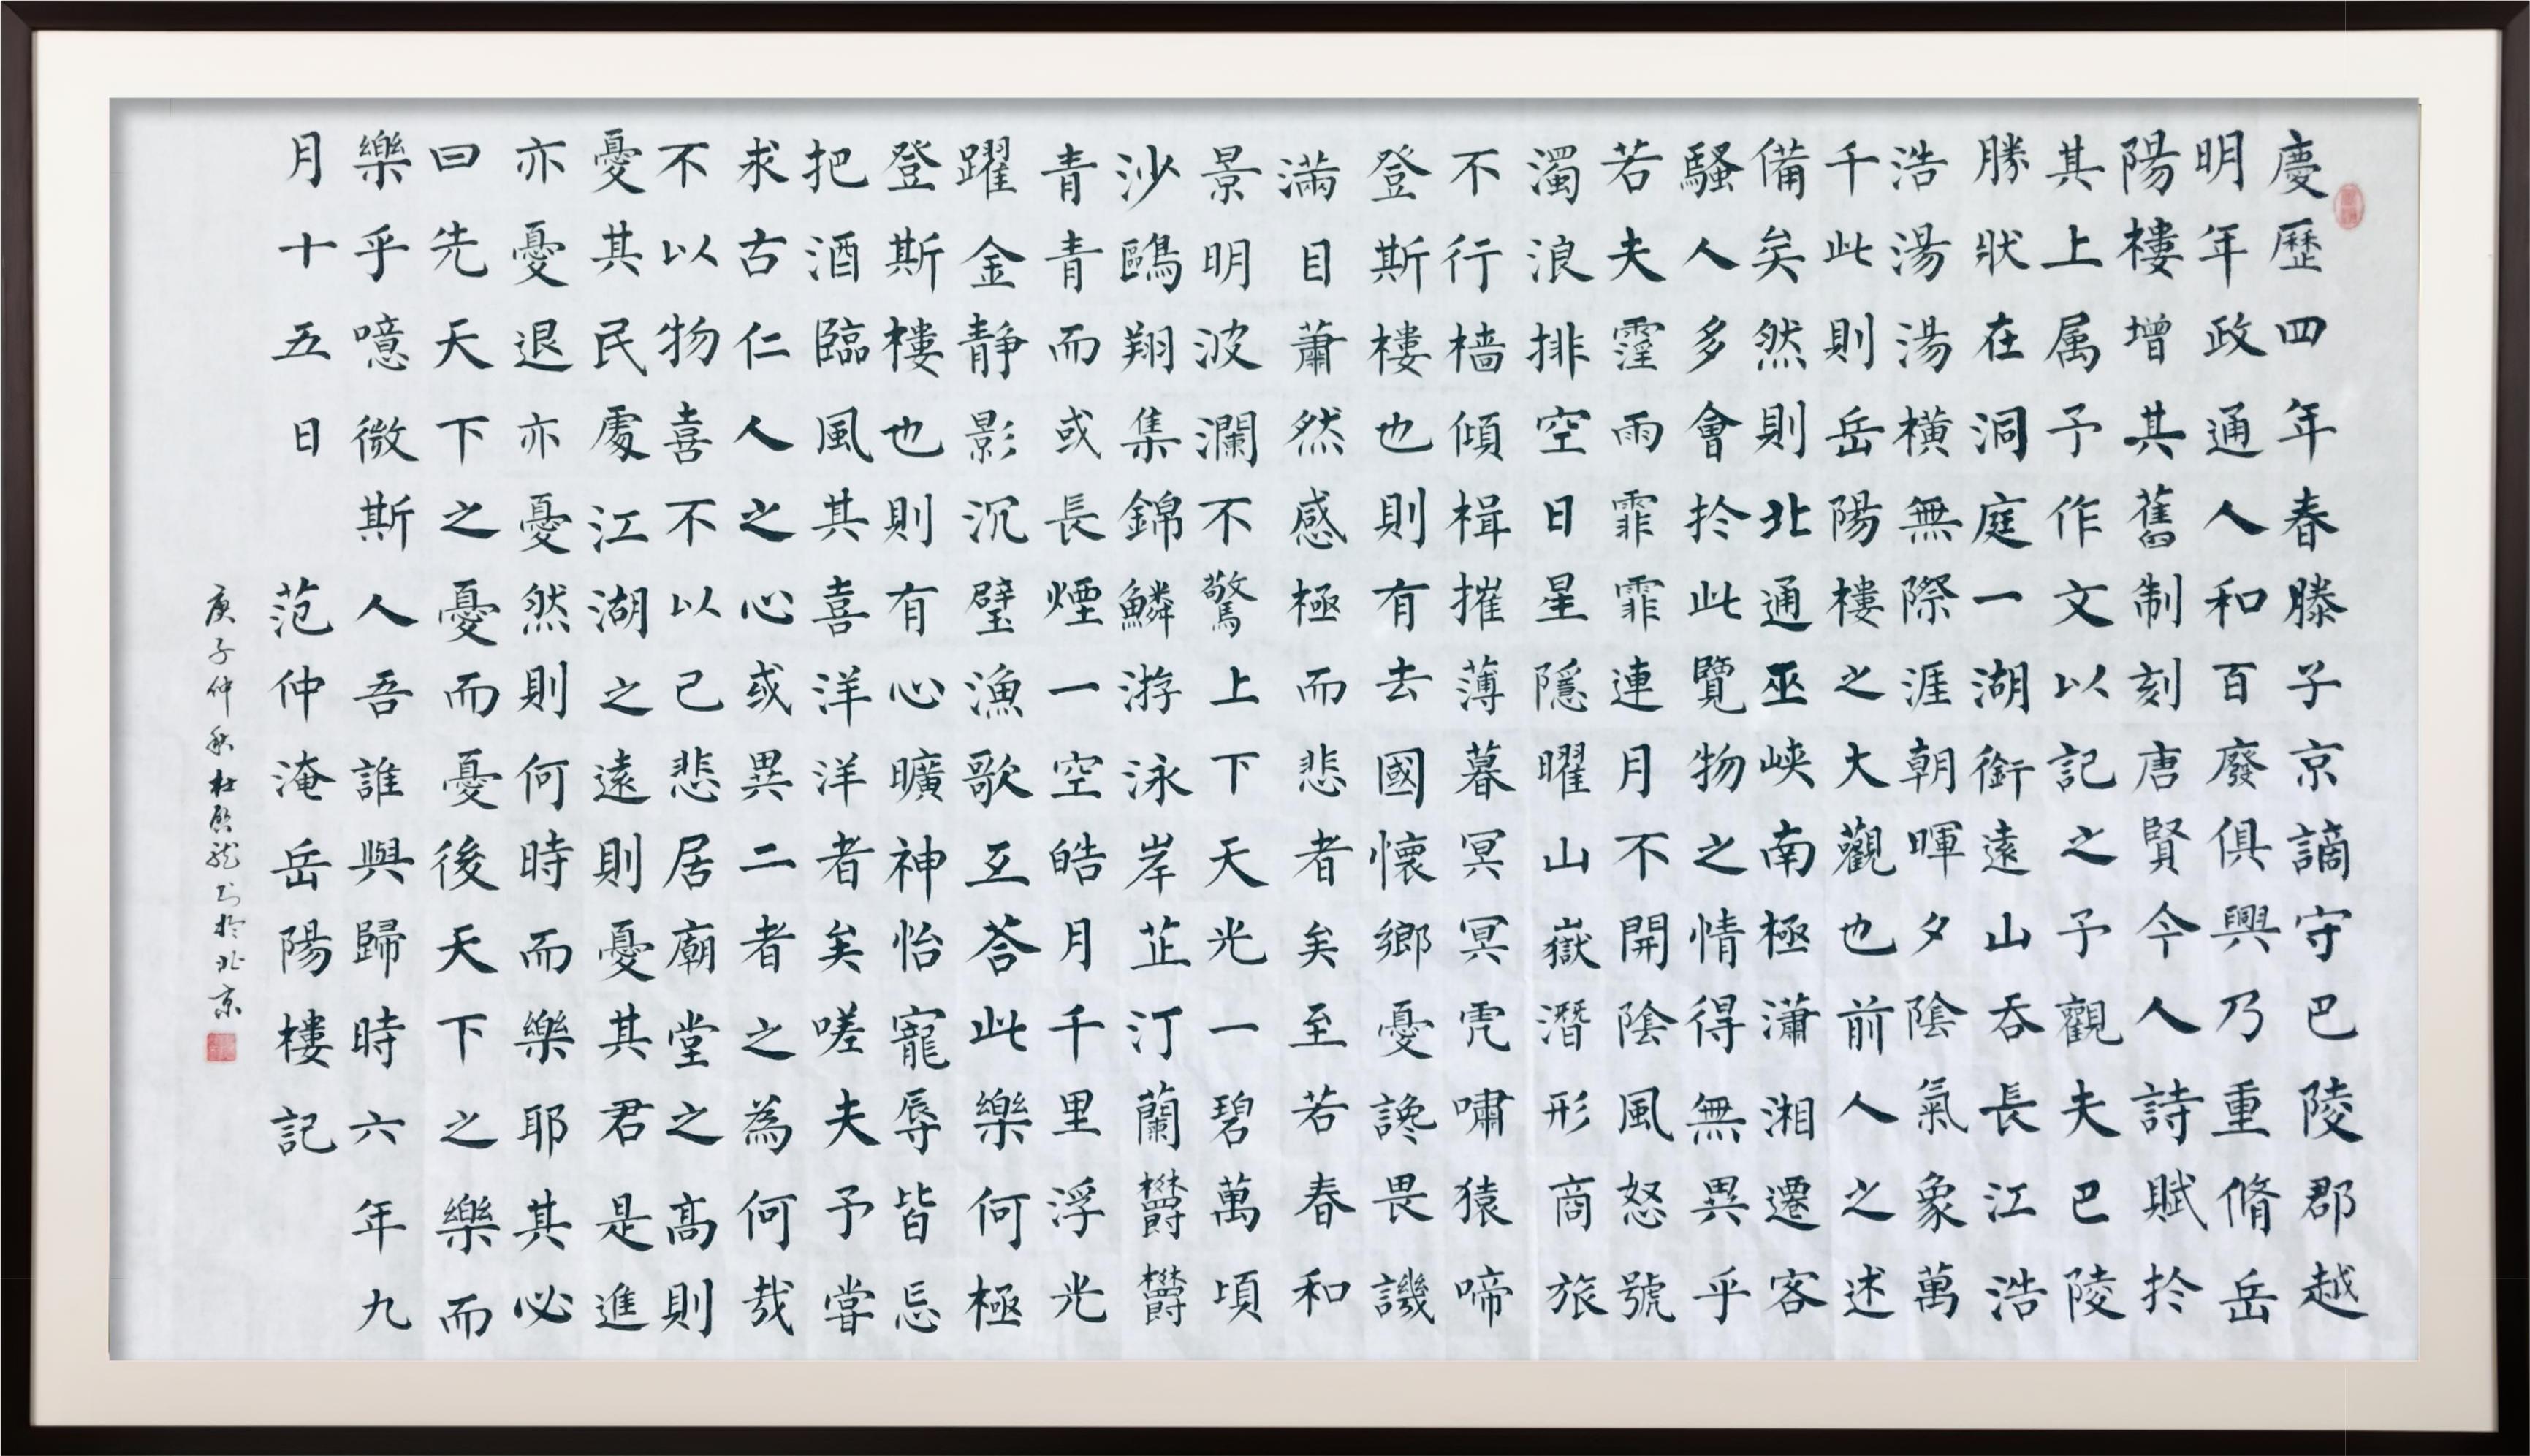 慶歷四年春滕子京謫守巴陵郡越
明年政通人和百廢俱興乃重脩岳
陽樓增其舊制刻唐賢今人詩賦於
其上属予作文以記之予觀夫巴陵
勝狀在洞庭一湖銜遠山吞長江浩
浩湯湯橫無際涯朝暉夕陰氣象萬
千此則岳陽樓之大觀也前人之述
備矣然則北通巫峽南極瀟湘遷客
騷人多會於此覽物之情得無異乎
若夫霪雨霏霏連月不開陰風怒號
濁浪排空日星隱曜山嶽潛形商旅
不行檣傾楫摧薄暮冥冥虎嘯猿啼
登斯樓也則有去國懷鄉憂讒畏譏
滿目蕭然感極而悲者矣至若春和
景明波瀾不驚上下天光一碧萬頃
沙鷗翔集錦鱗游泳岸芷汀蘭欝欝
青青而或長煙一空皓月千里浮光
躍金靜影沉璧漁歌互荅此樂何極
登斯樓也則有心曠神怡寵辱皆忘
把酒臨風其喜洋洋者矣嗟夫予嘗
求古仁人之心或異二者之為何哉
不以物喜不以己悲居廟堂之高則
憂其民處江湖之遠則憂其君是進
亦憂退亦憂然則何時而樂耶其必
曰先天下之憂而憂後天下之樂而
樂乎噫微斯人吾誰與歸時六年九
月十五日 范仲淹岳陽樓記
庚子仲秋杜啟龍书於北京